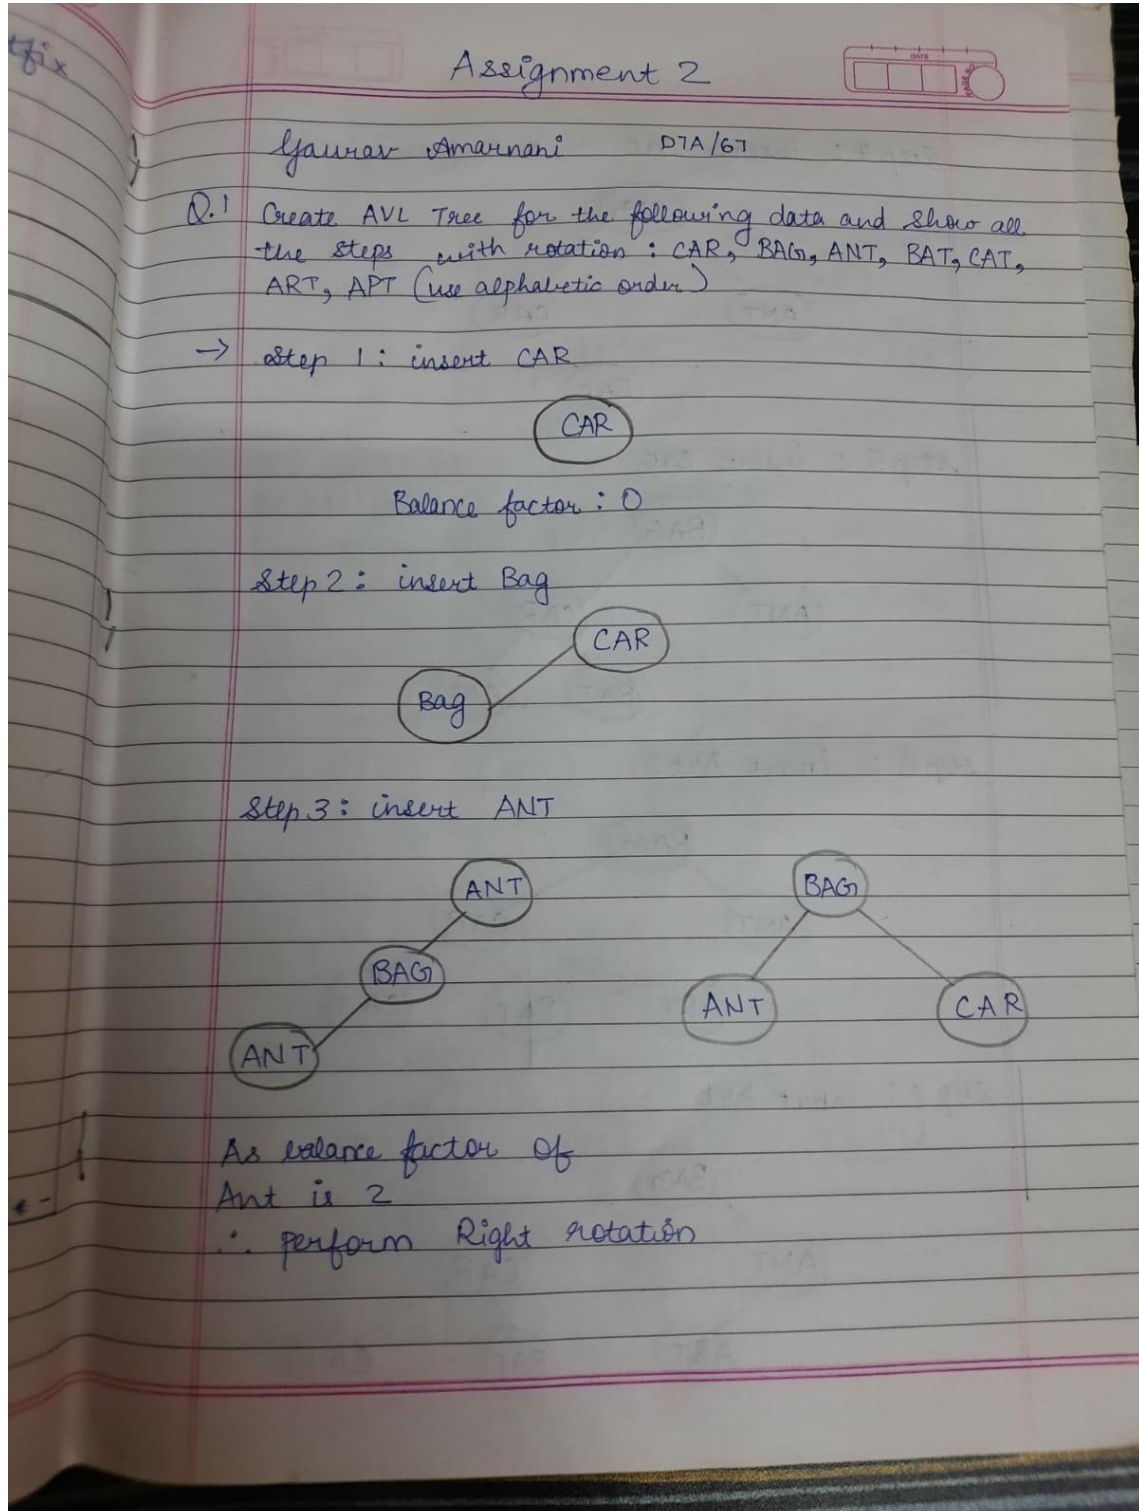 tfix
Assignment 2
DATE
Gaurav Amarnani D7A/67
Q.1 Create AVL Tree for the following data and show all
the steps with rotation : CAR, BAG, ANT, BAT, CAT,
ART, APT (use alphabetic order)
→ Step 1 : insert CAR
CAR
Balance factor : 0
Step 2 : insert Bag
CAR
Bag
Step 3 : insert ANT
ANT BAG
BAG
ANT CAR
ANT
As balance factor of
Ant is 2
∴ perform Right rotation